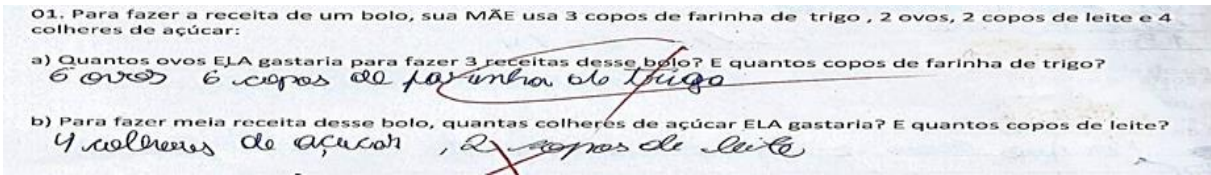 01. Para fazer a receita de um bolo, sua MÃE usa 3 copos de farinha de trigo , 2 ovos, 2 copos de leite e 4
colheres de açúcar:
a) Quantos ovos ELA gastaria para fazer 3 receitas desse bolo? E quantos copos de farinha de trigo?
6 ovos 6 copos de farinha de trigo
b) Para fazer meia receita desse bolo, quantas colheres de açúcar ELA gastaria? E quantos copos de leite?
4 colheres de açucar , 2 copos de leite